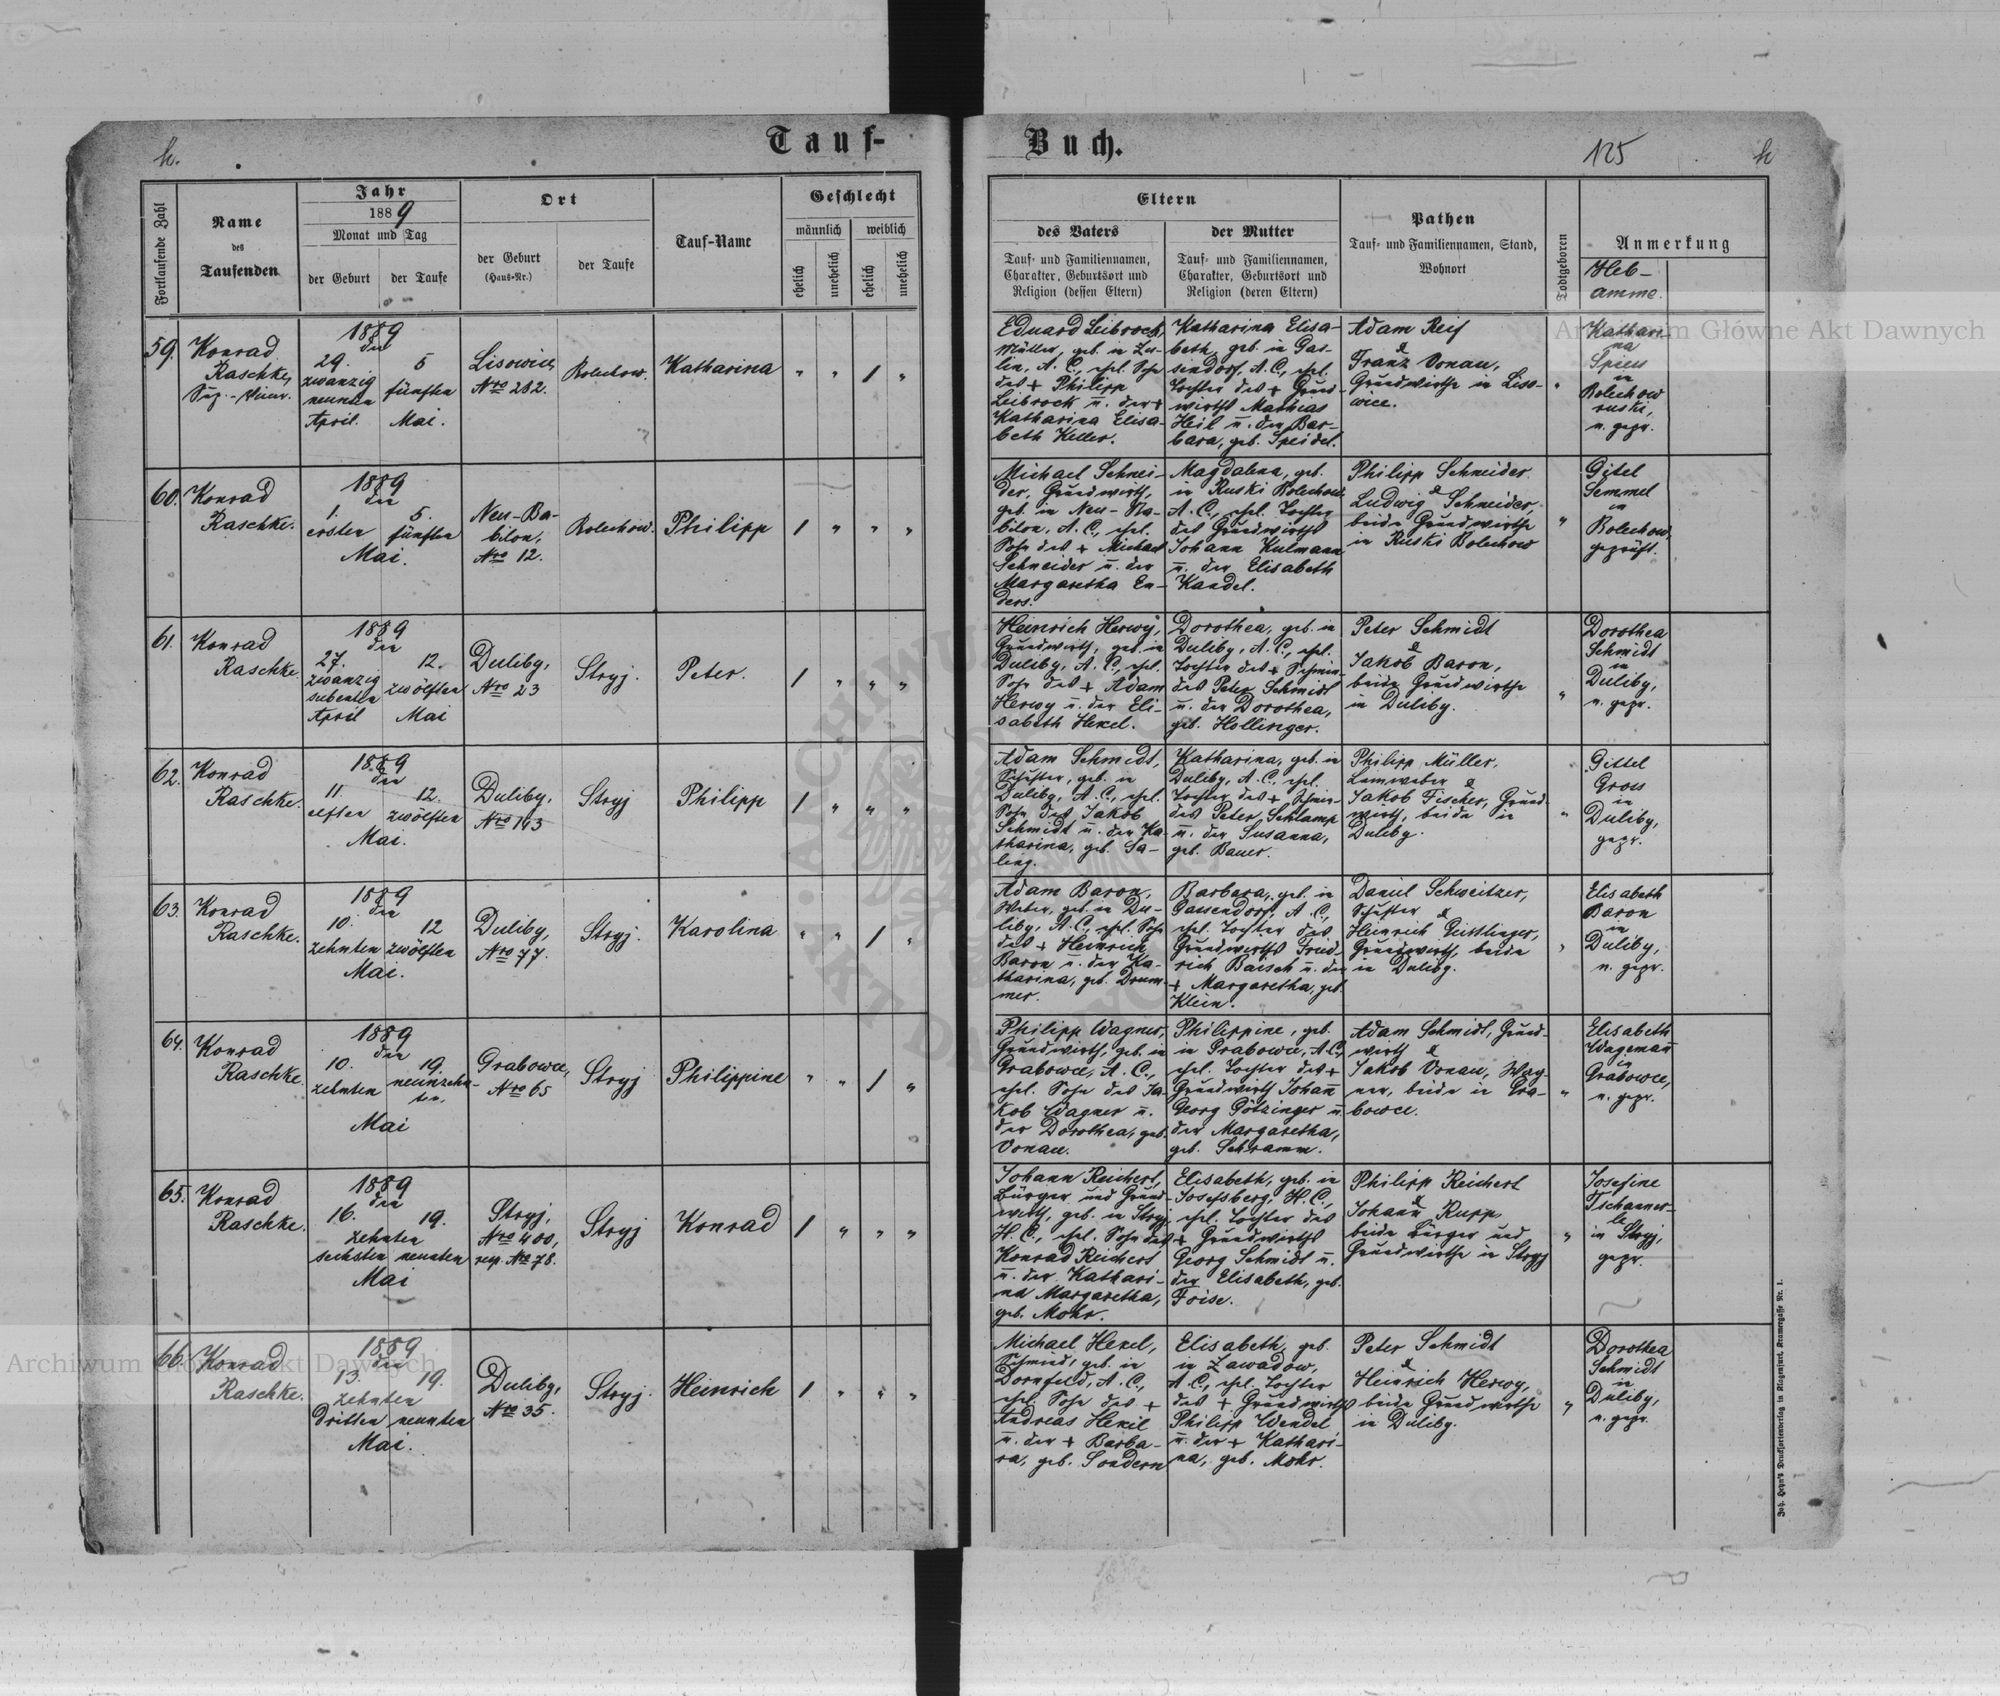 Tauf-
h.
Fortlaufende Zahl
Name
des
Taufenden
Jahr
1889
Monat und Tag
der Geburt
der Taufe
Ort
der Geburt
(Haus-Nr.)
der Taufe
Tauf-Name
Geschlecht
männlich
weiblich
ehelich
unehelich
ehelich
unehelich
59.
Konrad
Raschke,
1889
den
29.
zwanzig
neunten
April.
5
fünften
Mai.
Lisowice,
Nro 282.
Bolechow.
Katharina
" " / "
60.
Konrad
Raschke.
1889
den
1.
ersten
5.
fünften
Mai.
Neu-Ba-
bilon,
Nro 12.
Bolechow.
Philipp
/ " " "
61.
Konrad
Raschke.
1889
den
27.
zwanzig
siebenten
April
12.
zwölften
Mai
Duliby,
Nro 23
Stryj.
Peter.
/ " " "
62.
Konrad
Raschke.
1889
den
11.
elften
12.
zwölften
Mai.
Duliby,
Nro 143
Stryj
Philipp
/ " " "
63.
Konrad
Raschke.
1889
den
10.
zehnten
12
zwölften
Mai.
Duliby,
Nro 77.
Stryj.
Karolina
" " / "
64.
Konrad
Raschke.
1889
den
10.
zehnten
19.
neunzehn-
ten.
Mai
Grabowce,
Nro 65
Stryj
Philippine
" " / "
65.
Konrad
Raschke.
1889
den
16.
19.
zehnten
sechsten neunten
Mai
Stryj,
Nro 400,
resp. Nro 78.
Stryj
Konrad
/ " " "
66.
Konrad
Raschke.
1889
den
13.
19.
zehnten
dritten neunten
Mai.
Duliby,
Nro 35.
Stryj.
Heinrich
/ " " "
Buch.
125
h
Eltern
des Vaters
Tauf- und Familiennamen,
Charakter, Geburtsort und
Religion (dessen Eltern)
der Mutter
Tauf- und Familiennamen,
Charakter, Geburtsort und
Religion (deren Eltern)
Pathen
Tauf- und Familiennamen, Stand,
Wohnort
Todtgeboren
Anmerkung
Heb-
amme.
Eduard Leibrock,
Müller, geb. in Zu-
lin, A. C., ehel. Sohn
des + Philipp
Leibrock u. der +
Katharina Elisa-
beth Keller.
Katharina Elisa-
beth, geb. in Gas-
sendorf, A. C., ehel.
Tochter des + Grund-
wirths Mathias
Heil u. der Bar-
bara, geb. Speidel.
Adam Reif
&
Franz Vonau,
Grundwirthe in Liso-
wice.
"
Kathari-
na
Spies
in
Bolechow
ruski,
n. gepr.
Michael Schnei-
der, Grundwirth,
geb. in Neu-Ba-
bilon, A. C., ehel.
Sohn des + Michael
Schneider u. der
Margaretha En-
ders.
Magdalena, geb.
in Ruski Bolechow
A. C., ehel. Tochter
des Grundwirths
Johann Kulmann
u. der Elisabeth
Kandel.
Philipp Schneider
&
Ludwig Schneider,
beide Grundwirthe
in Ruski Bolechow
"
Gitel
Semmel
in
Bolechow,
geprüft.
Heinrich Herwy,
Grundwirth, geb. in
Duliby, A. C., ehel.
Sohn des + Adam
Herwy u. der Eli-
sabeth Hexel.
Dorothea, geb. in
Duliby, A. C., ehel.
Tochter des +
des Peter Schmidt
u. der Dorothea,
geb. Hollinger.
Peter Schmidt
&
Jakob Baron,
beide Grundwirthe
in Duliby.
"
Dorothea
Schmidt
in
Duliby,
n. gepr.
Adam Schmidt,
Schuster, geb. in
Duliby, A. C., ehel.
Sohn des Jakob
Schmidt u. der Ka-
tharina, geb. Sa-
leng.
Katharina, geb. in
Duliby, A. C., ehel.
Tochter des +
des Peter Schlamp
u. der Susanna,
geb. Bauer.
Philipp Müller,
Leinweber &
Jakob Fischer, Grund-
wirth, beide in
Duliby.
"
Gittel
Gross
in
Duliby,
gepr.
Adam Baron,
Weber, geb. in Du-
liby, A. C., ehel. Sohn
des + Heinrich
Baron u. der Ka-
tharina, geb. Drum-
mer.
Barbara, geb. in
Gassendorf, A. C.,
ehel. Tochter des
Grundwirths Fried-
rich Baisch u. der
+ Margaretha, geb.
Klein.
Daniel Schweitzer,
Schuster &
Heinrich Geisslinger,
Grundwirth, beide
in Duliby.
"
Elisabeth
Baron
in
Duliby,
n. gepr.
Philipp Wagner,
Grundwirth, geb. in
Grabowce, A. C.,
ehel. Sohn des Ja-
kob Wagner u.
der Dorothea, geb.
Vonau.
Philippine, geb.
in Grabowce, A. C.,
ehel. Tochter des +
Grundwirth Johann
Georg Götzinger u.
der Margaretha,
geb. Schramm.
Adam Schmidt, Grund-
wirth &
Jakob Vonau, Wag-
ner, beide in Gra-
bowce.
"
Elisabeth
Wagemann
in
Grabowce,
n. gepr.
Johann Reichert,
Bürger und Grund-
wirth, geb. in Stryj,
H. C., ehel. Sohn des
Konrad Reichert
u. der Kathari-
na Margaretha,
geb. Mohr.
Elisabeth, geb. in
Josefsberg, H. C.,
ehel. Tochter des
+ Grundwirths
Georg Schmidt u.
der Elisabeth, geb.
Foise.
Philipp Reichert
&
Johann Rupp
beide Bürger und
Grundwirthe in Stryj
"
Josefine
Tschanner-
le
in Stryj,
gepr.
Michael Hexel,
Schmied, geb. in
Dornfeld, A. C.,
ehel. Sohn des +
Andreas Hexel
u. der + Barba-
ra, geb. Sondern
Elisabeth, geb.
in Zawadow,
A. C., ehel. Tochter
des + Grundwirths
Philipp Wendel
u. der + Kathari-
na, geb. Mohr.
Peter Schmidt
&
Heinrich Herwy,
beide Grundwirthe
in Duliby.
"
Dorothea
Schmidt
in
Duliby,
n. gepr.
Joh. Heyn's Drucksortenverlag in Klagenfurt, Kramergasse Nr. 1.
Archiwum Główne Akt Dawnych
Archiwum Główne Akt Dawnych